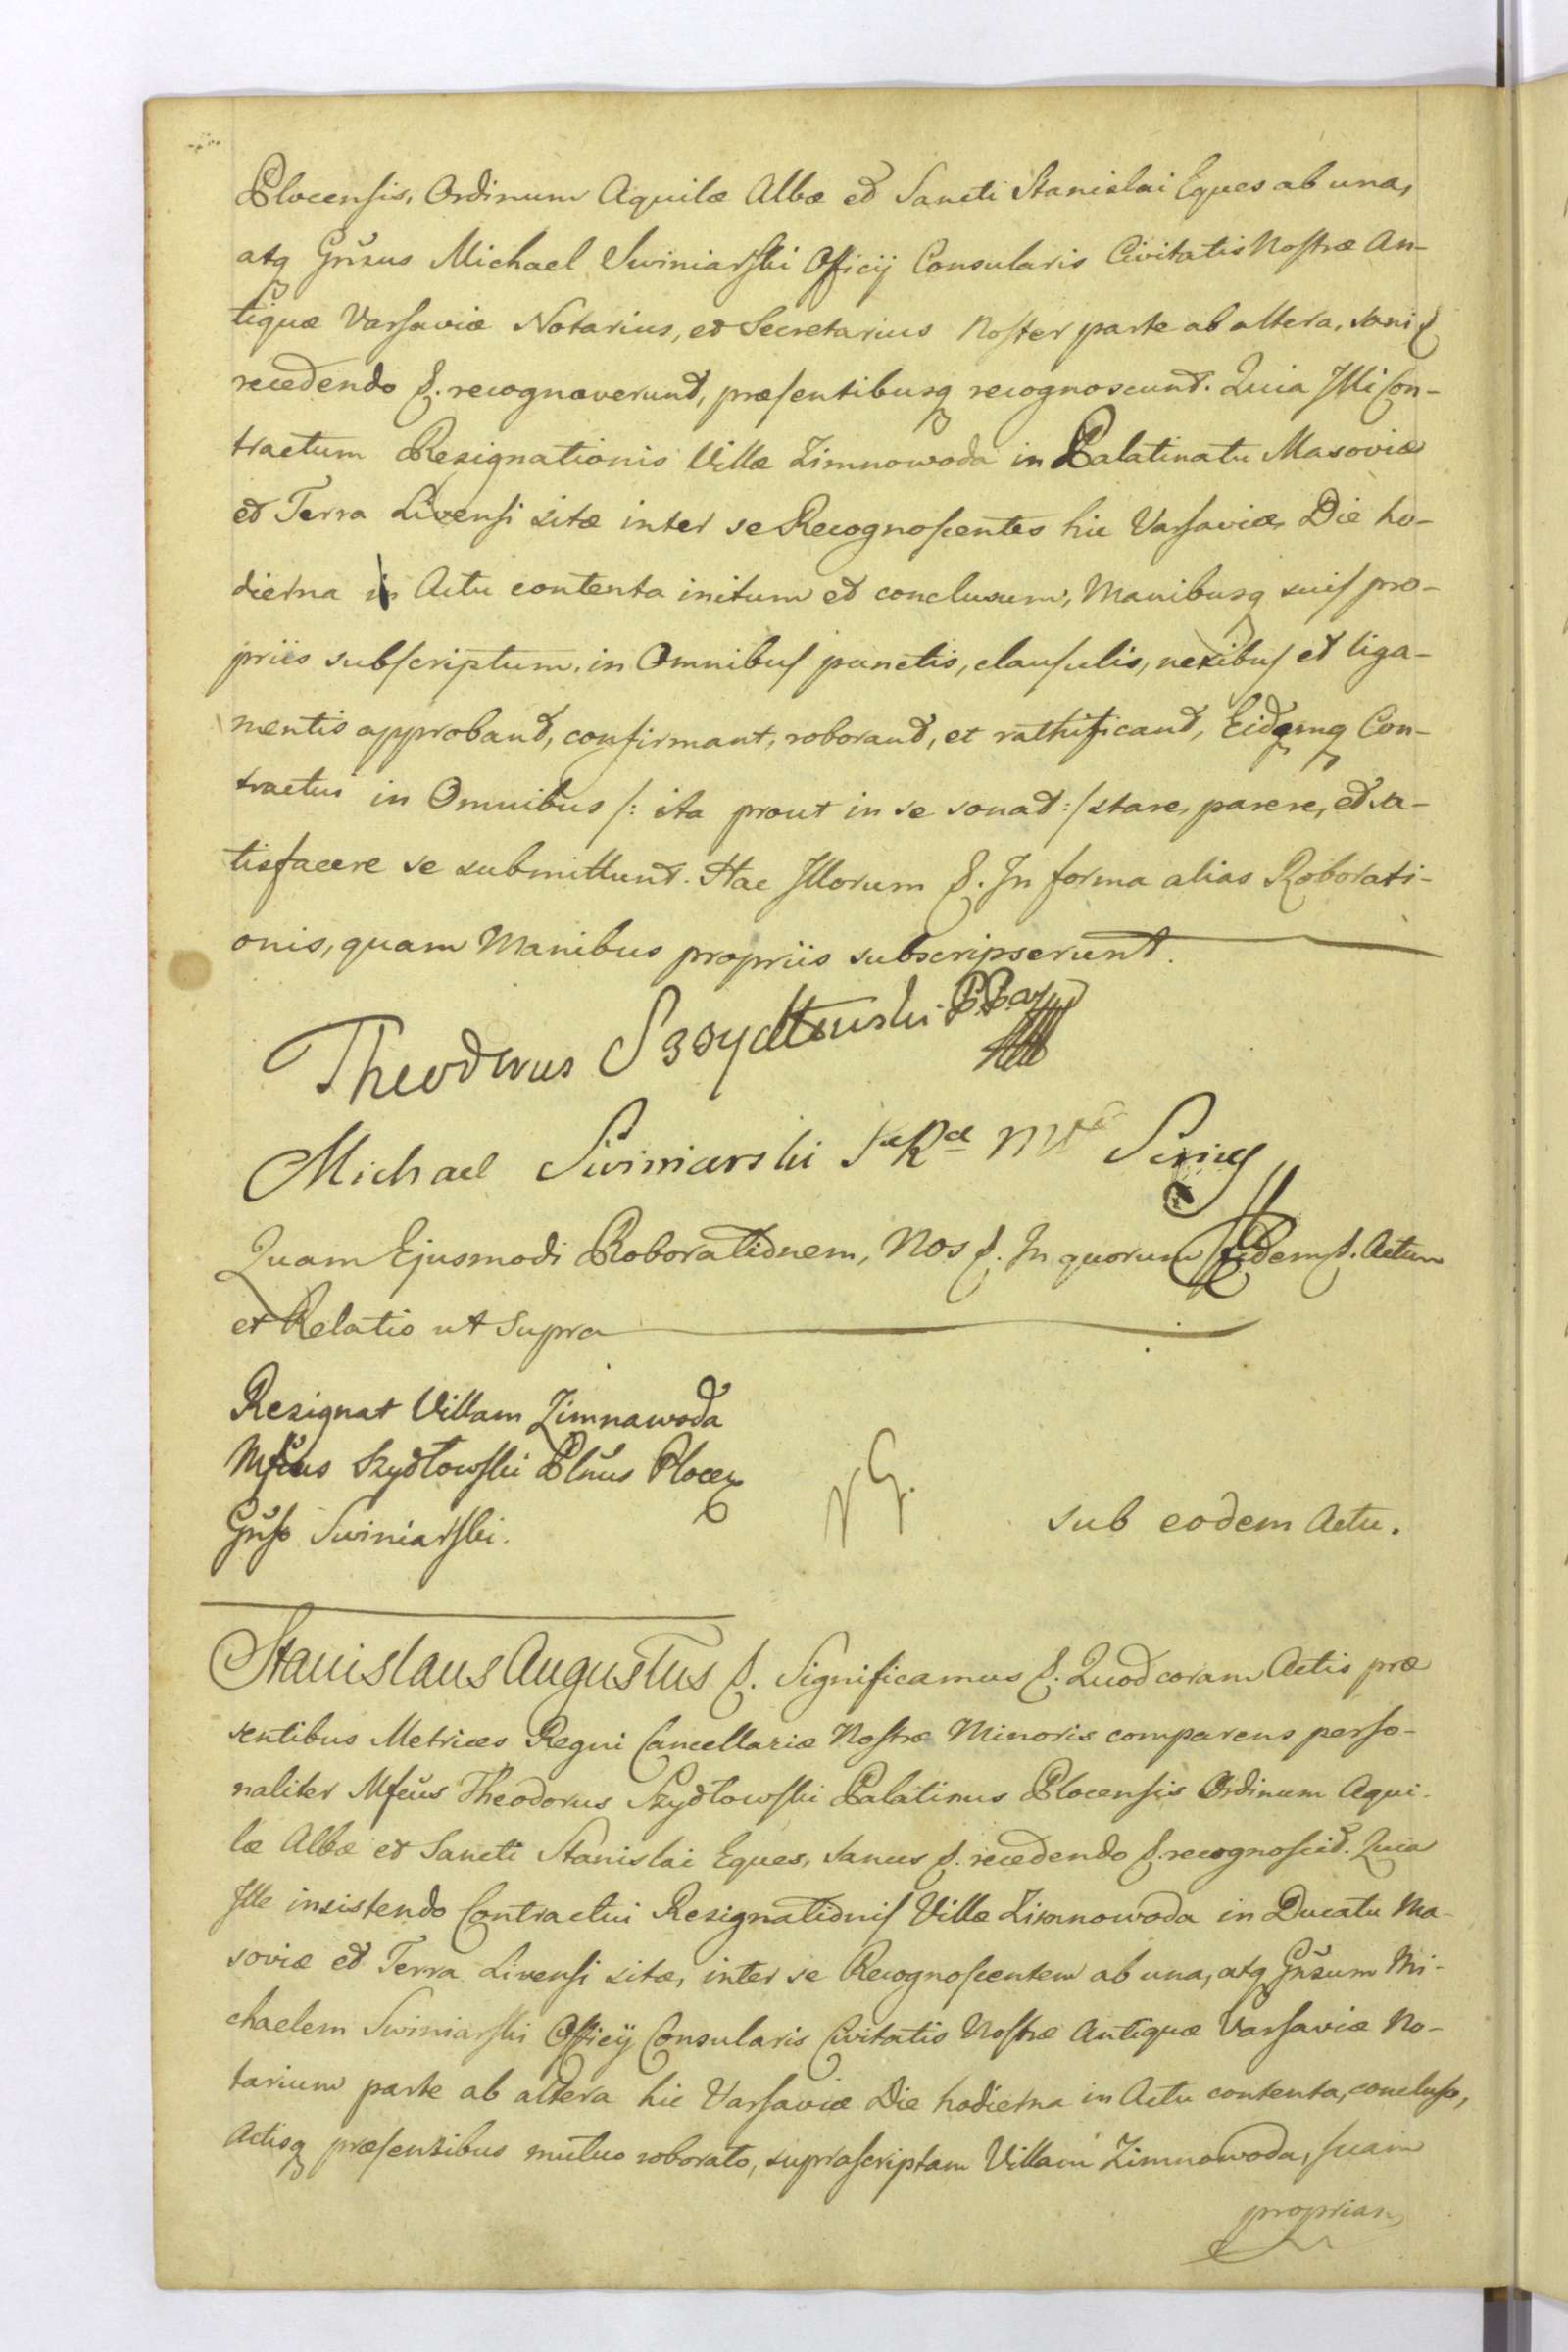 Plocensis, Ordinum Aquilæ Albæ et Sancti Stanislai Eques ab una,
atq Gñsus Michael Swiniarski Officij Consularis Civitatis Nostræ An-
tiquæ Varsaviæ Notarius, et Secretarius Noster parte ab altera, sani
recedendo &. recognoverunt, præsentibusq recognoscunt. Quia Illi Con-
tractum Resignationis Villæ Zimnowoda in Palatinatu Masoviæ
et Terra Livensi sitæ inter se Recognoscentes hic Varsaviæ Die ho-
dierna in Actu contenta initum et conclusum, Manibusq suis pro-
priis subscriptum, in Omnibus punctis, clausulis, nexibus et liga-
mentis approbant, confirmant, roborant, et rathificant, Eidemq Con-
tractui in Omnibus /: ita prout in se sonat :/ stare, parere, et sa-
tisfacere se submittunt. Hac Illorum &. In forma alias Roborati-
onis, quam Manibus propriis subscripserunt.
Theodorus Szydłowski
Michael Swiniarski
Quam Ejusmodi Roborationem, Nos &. In quorum Fidem &. Actum
et Relatio ut Supra
Resignat Villam Zimnawoda
Mfcus Szydłowski Plnus Plocen
Gñso Swiniarski.
sub eodem Actu.
Stanislaus Augustus &. Significamus &. Quod coram Actis præ
sentibus Metrices Regni Cancellariæ Nostræ Minoris comparens perso-
naliter Mfcus Theodorus Szydłowski Palatinus Plocensis Ordinum Aqui-
læ Albæ et Sancti Stanislai Eques, sanus &. recedendo &. recognoscit. Quia
Ille insistendo Contractui Resignationis Villæ Zimnowoda in Ducatu Ma-
soviæ et Terra Livensi sitæ, inter se Recognoscentem ab una, atq Gñsum Mi-
chaelem Swiniarski Officij Consularis Civitatis Nostræ Antiquæ Varsaviæ No-
tarium parte ab altera hic Varsaviæ Die hodierna in Actu contenta, concluso,
Actisq præsentibus mutuo roborato, suprascriptam Villam Zimnowoda, suam
propriam